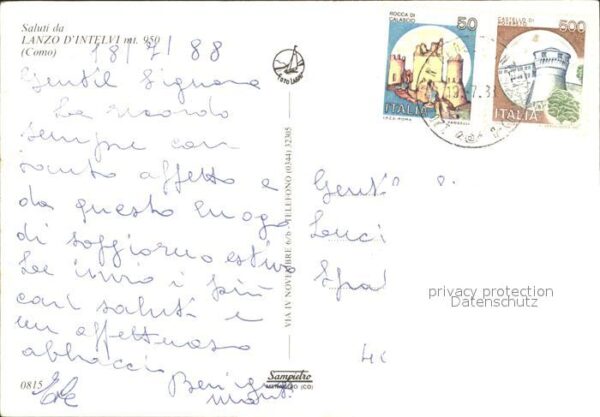 Saluti da
LANZO D'INTELVI mt. 950
(Como)
18/7/88
Gentil Signora
La ricordo
sempre con
tanto affetto e
da questo luogo
di soggiorno estivo
Le invio i più
cari saluti e
un affettuoso
abbraccio
0815
VIA IV NOVEMBRE 6/b - TELEFONO (0344) 32305
Sampietro
MENAGGIO (CO)
ROCCA DI
CALASCIO
50
ITALIA
I.P.Z.S. ROMA
CASTELLO DI
ROVERETO
500
ITALIA
Gentil
privacy protection
Datenschutz